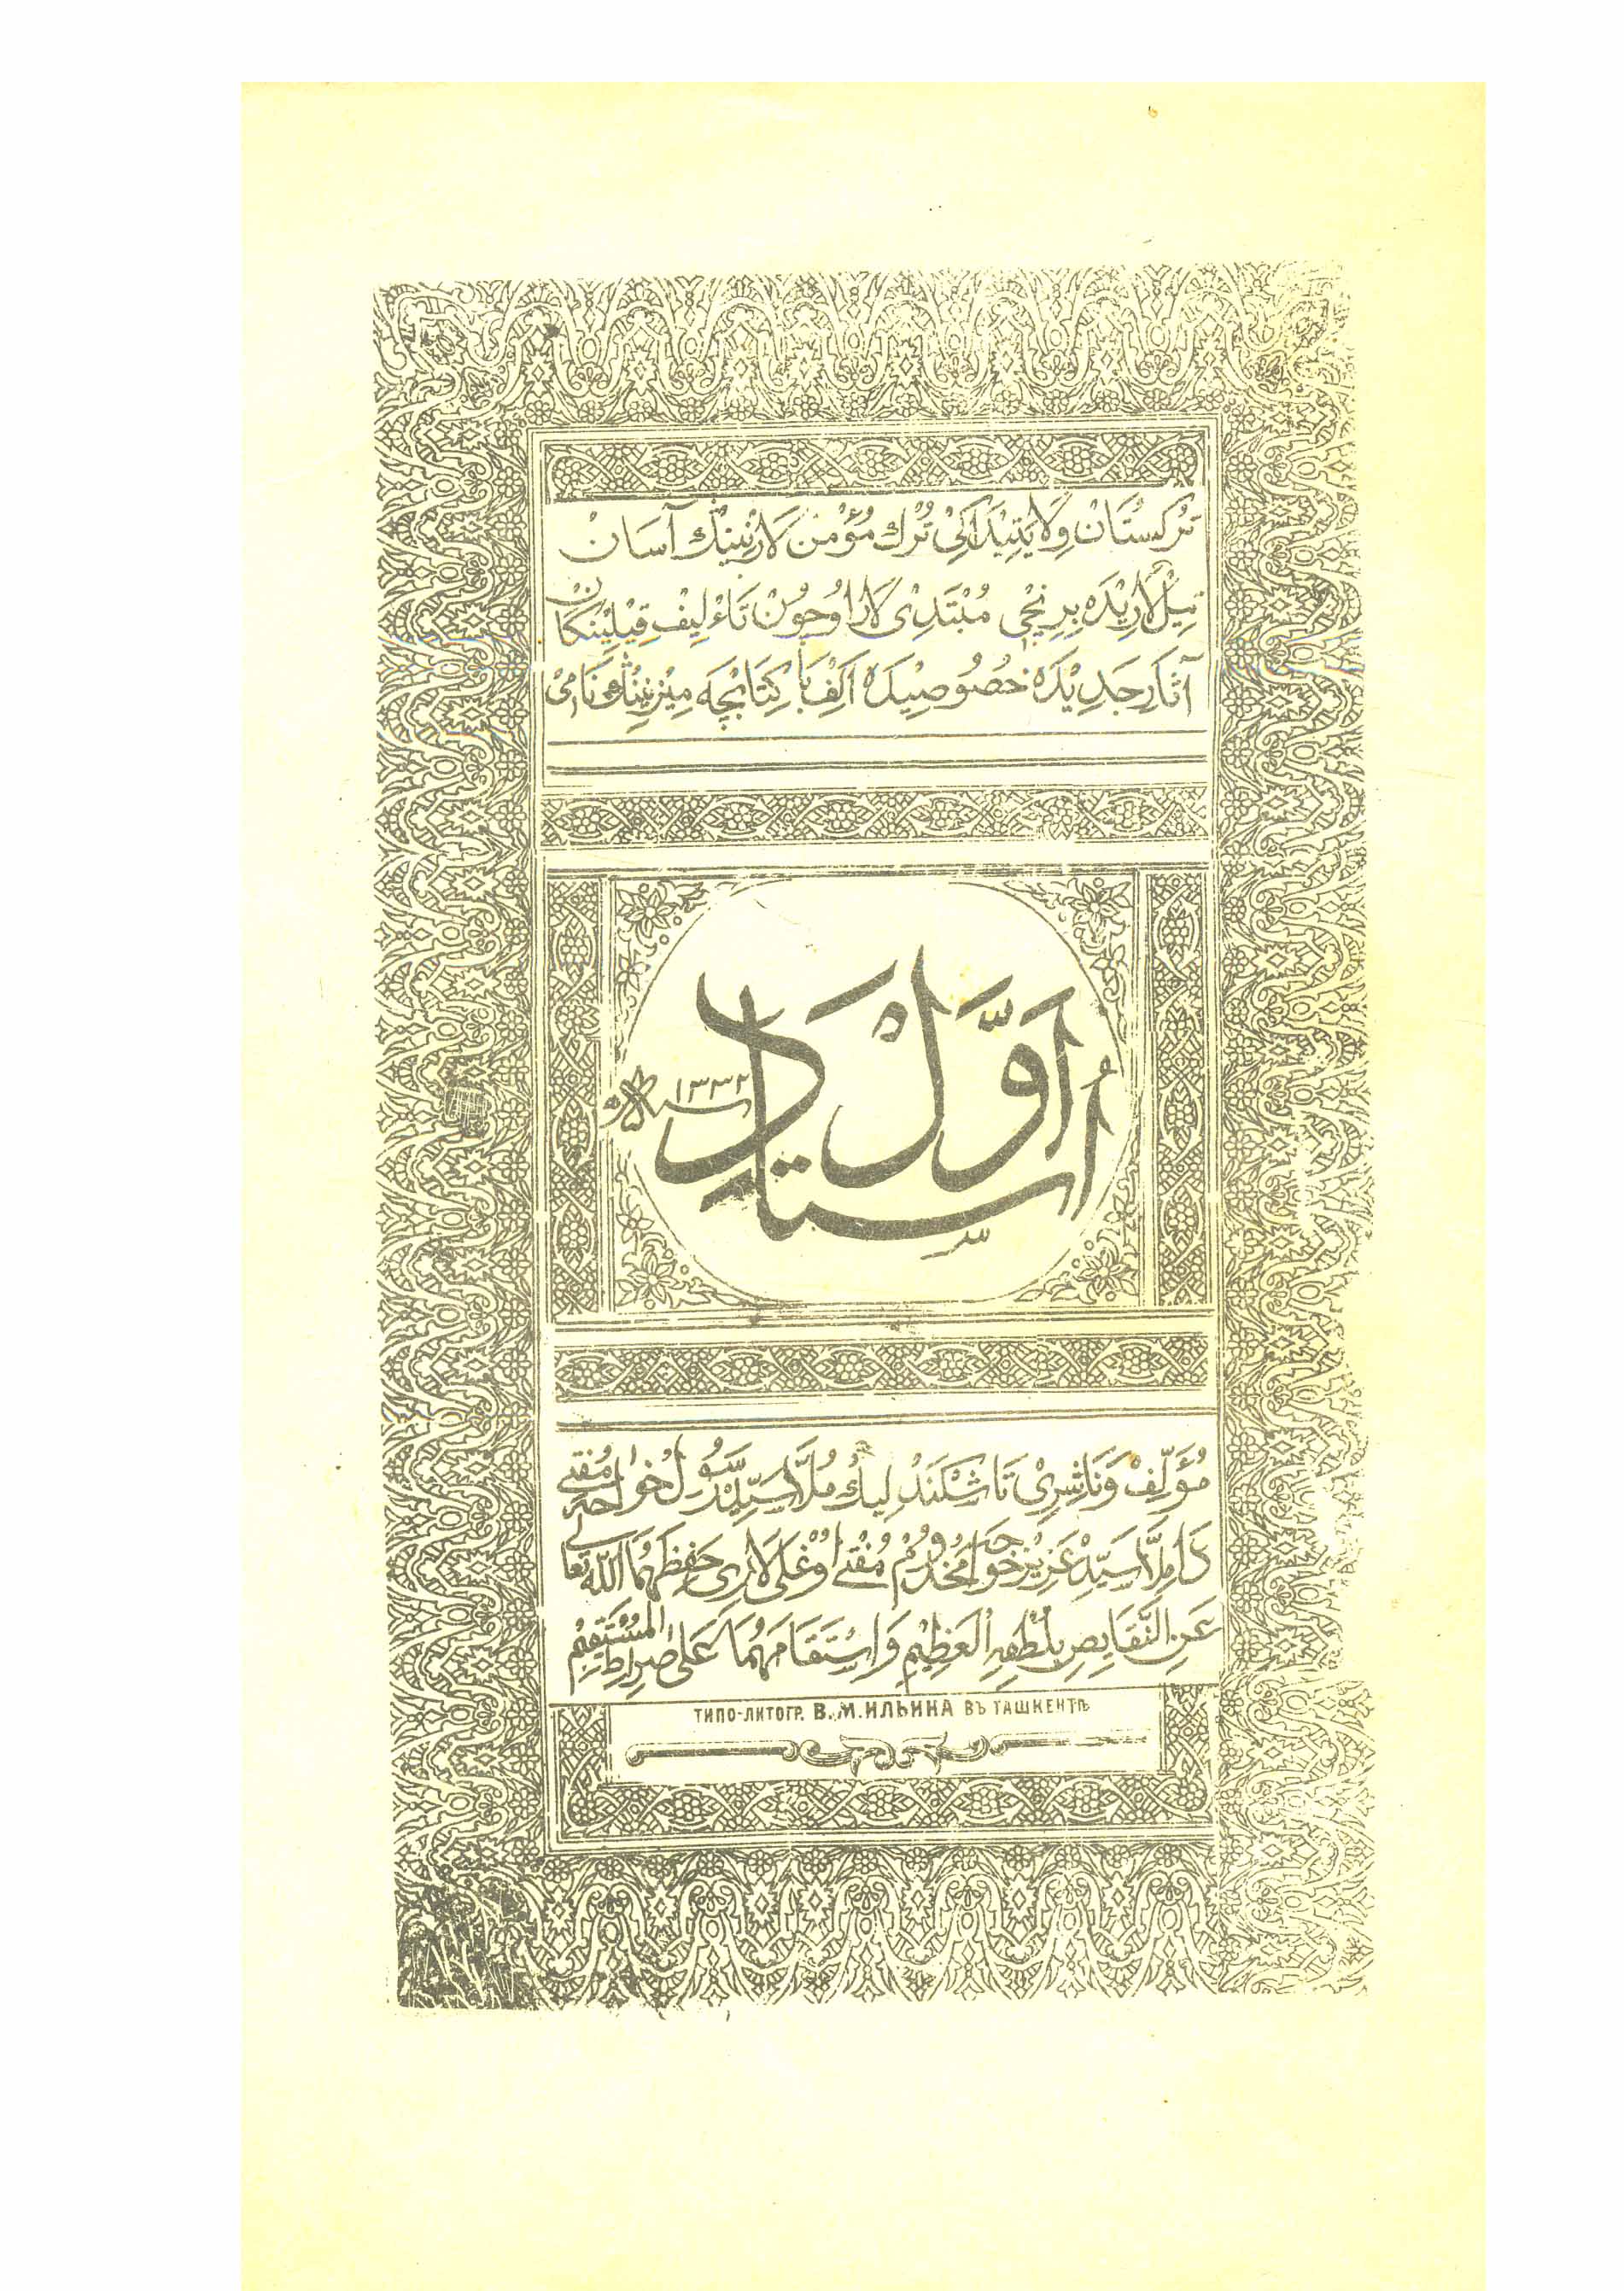 تُرْكِسْتَانْ وِلَايَتِيْدَاكِىْ تُرْك مُؤْمِنْ لَارْنِينْك آسَانْ
تِيْل لَارِيْدَه بِرِنْچِى مُبْتَدِىْ لَار اُوچُوْنْ تَاءْلِيْفْ قِيْلِيْنْكَانْ
آثَارِ جَدِيْدَه خُصُوصِيْدَه اَلِفْبَا كِتَابْچَه مِيْزنِينْك نَامِىْ
اُسْتَادِ اَوَّلْ
سنه ١٣٣٢
مُؤَلِّفْ وَنَاشِرِىْ تَاشْكَنْدْ لِيك مُلَّا سَيِّدْ رَسُوْل خُواجَه مُفْتِى
دَامِلَّا سَيِّدْ عَزِيْز خُوَاجَه مَخْدُوْمْ مُفْتِى اُوْغْلِى لَارِى حَفِظَهُمَا اللّٰه تَعَالٰى
عَنِ النَّقَايِصِ بِلُطْفِهِ الْعَظِيْمِ وَاسْتَقَامَهُمَا عَلٰى صِرَاطِ الْمُسْتَقِيْمِ
ТИПО-ЛИТОГР. В. М. ИЛЬИНА ВЪ ТАШКЕНТѢ